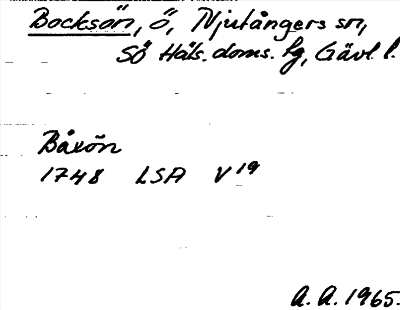 Bocksön, ö, Njutångers sn,
SÖ Häls. doms. lg, Gävl. l.
Båxön
1748 LSA V 19
A. A. 1965.